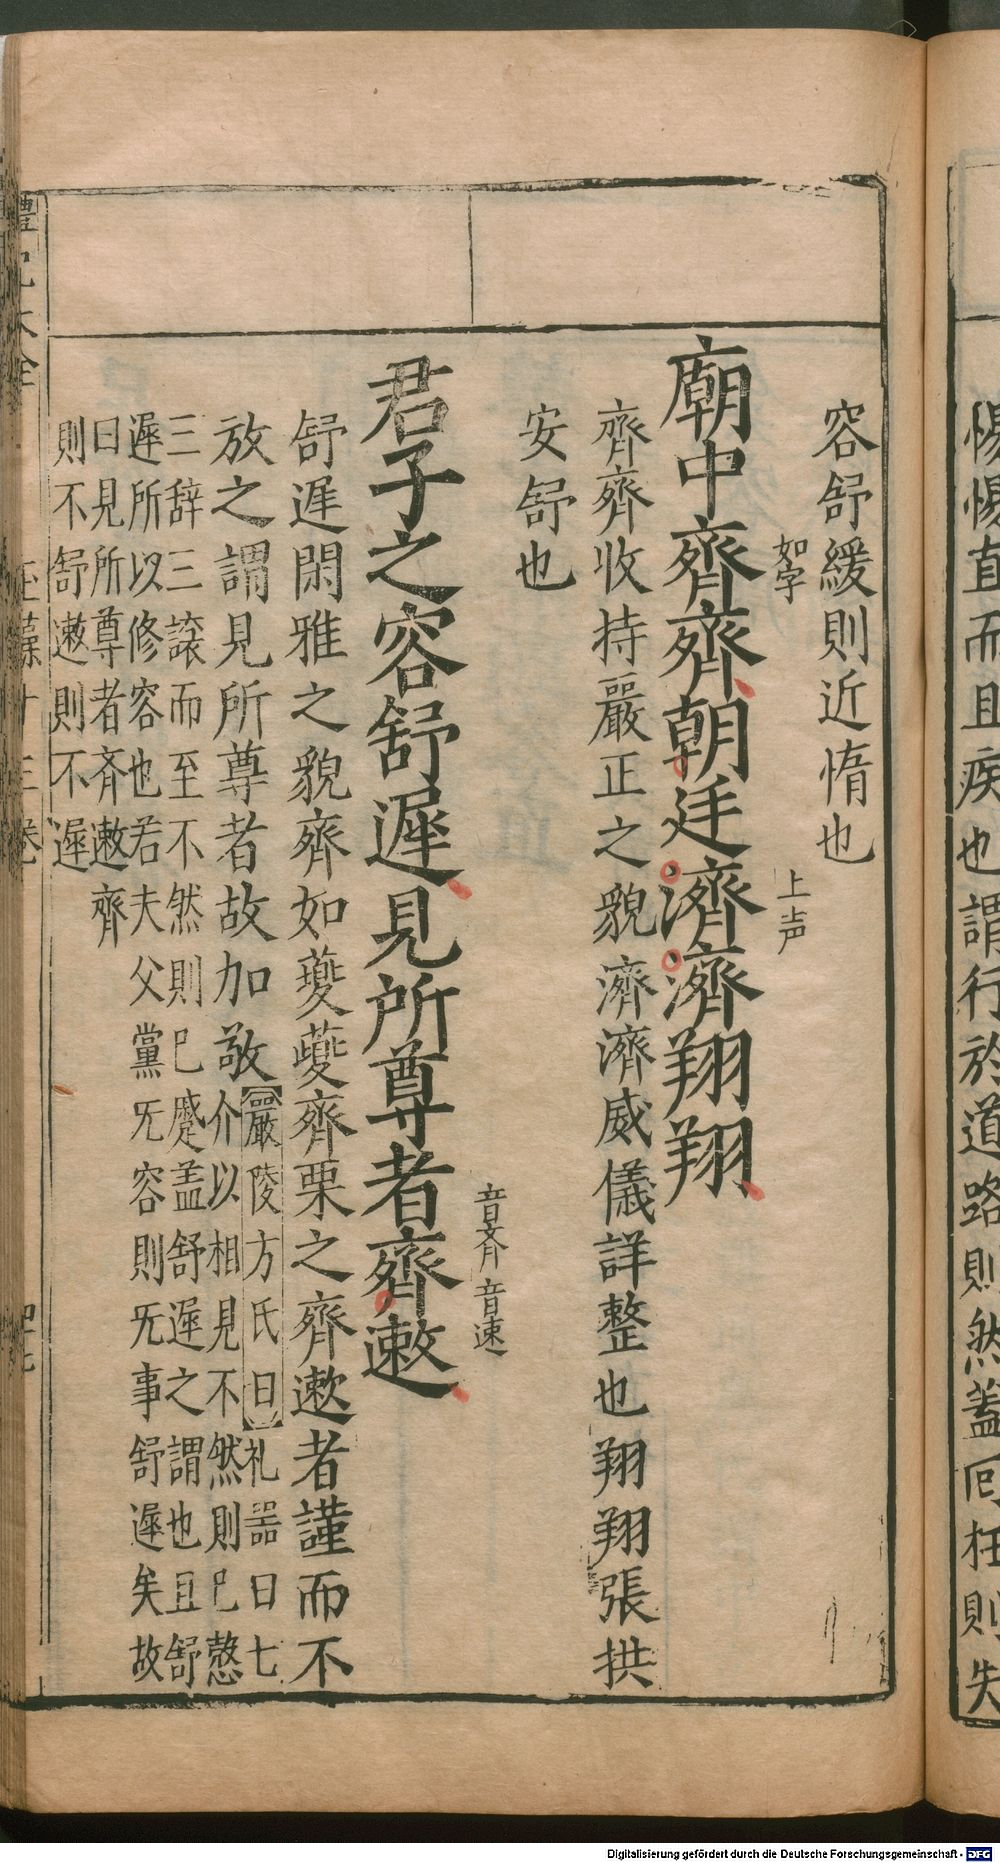 惕惕直而且疾也謂行於道路則然蓋回枉則失
容舒緩則近惰也
廟中齊齊朝廷濟濟翔翔
如字
上声
齊齊收持嚴正之貌濟濟威儀詳整也翔翔張拱
安舒也
君子之容舒遲見所尊者齊遬
音齊音速
舒遲閑雅之貌齊如夔夔齊栗之齊遬者謹而不
放之謂見所尊者故加敬
嚴陵方氏曰礼器曰七
介以相見不然則已慤
三辞三讓而至不然則已蹙盖舒遲之謂也且舒
遲所以修容也若夫父黨旡容則旡事舒遲矣故
曰見所尊者齊遬齊
則不舒遬則不遲
禮記大全
玉藻十三卷
四十七
Digitalisierung gefördert durch die Deutsche Forschungsgemeinschaft - DFG